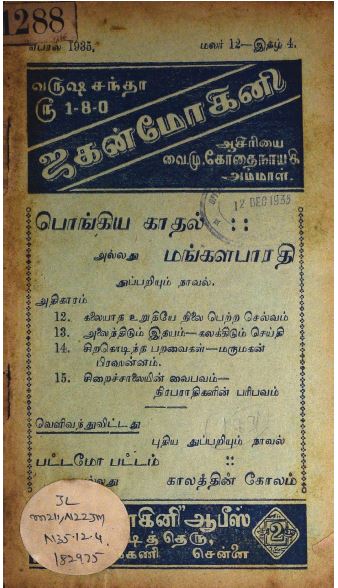 1288
ஏப்ரல் 1935. மலர் 12—இதழ் 4.
வருஷ சந்தா
ரூ 1-8-0
ஜகன்மோகினி
ஆசிரியை
வை.மு.கோதைநாயகி
அம்மாள்.
12 DEC 1935
பொங்கிய காதல் ::
அல்லது மங்களபாரதி
துப்பறியும் நாவல்.
அதிகாரம்
12. கலையாத உறுதியே நிலை பெற்ற செல்வம்
13. அலைந்திடும் இதயம்—கலக்கிடும் செய்தி
14. சிறகொடிந்த பறவைகள்—மருமகன்
பிரஸன்னம்.
15. சிறைச்சாலையின் வைபவம்—
நிரபராதிகளின் பரிபவம்
வெளிவந்துவிட்டது
புதிய துப்பறியும் நாவல்
பட்டமோ பட்டம் ::
காலத்தின் கோலம்
கினி" ஆபீஸ்
தெரு,
கேணி சென்னை
2
JL
N35-12-4.
182975